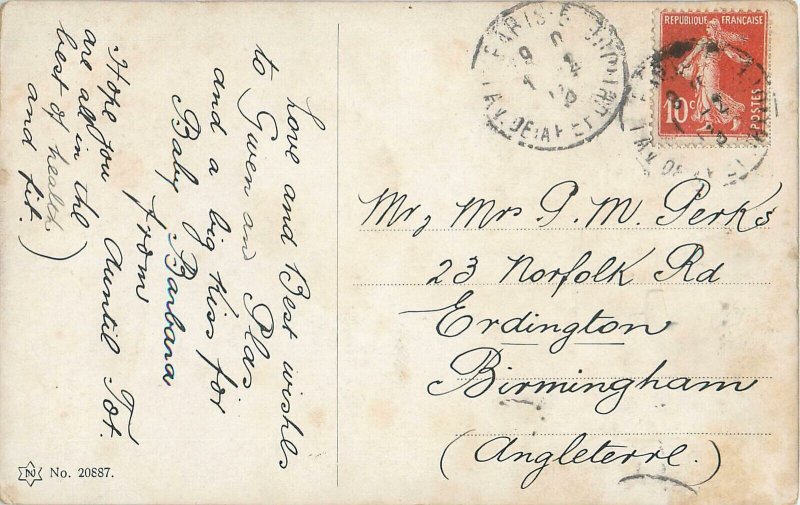 Love and Best wishes
to Gwen and Plas
and a big kiss for
Baby Barbara
from
Auntie Tot.
Hope you
are all in the
best of health
and fit.)
No. 20887.
PARIS-E
REPUBLIQUE FRANÇAISE
10c
POSTES
Mr, Mrs P. M. Perks
23 Norfolk Rd
Erdington
Birmingham
(Angleterre.)